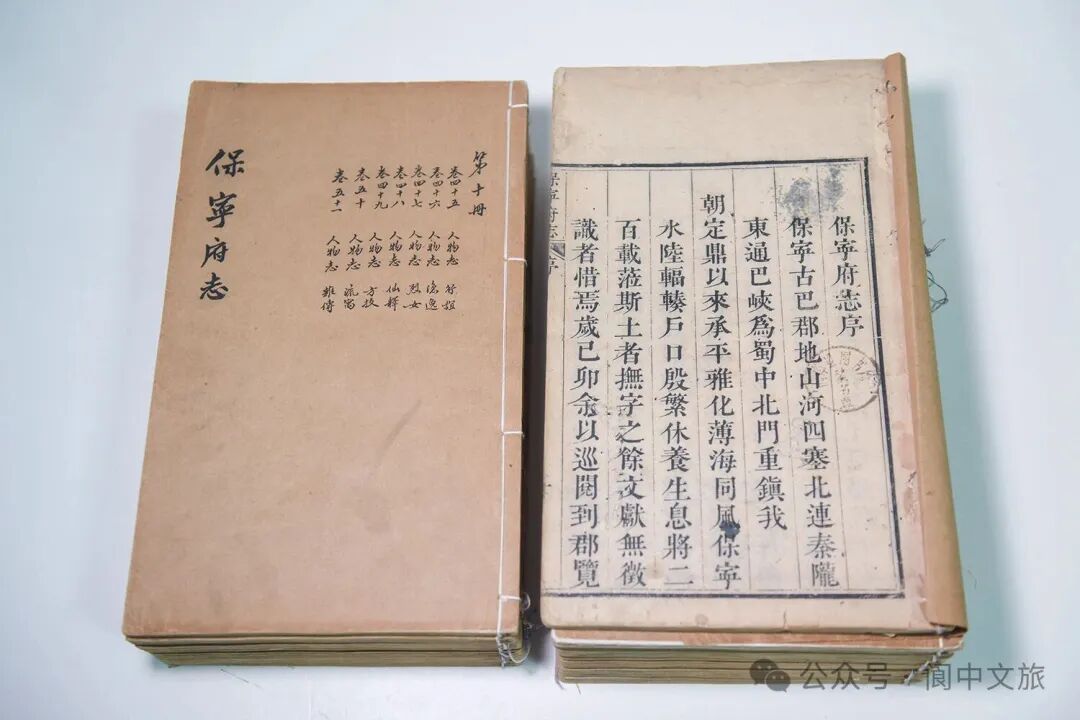 第十冊
卷四十五 人物志 行誼
卷四十六 人物志 隱逸
卷四十七 人物志 烈女
卷四十八 人物志 仙釋
卷四十九 人物志 方技
卷五十 人物志 流寓
卷五十一 人物志 雜傳
保寧府志
保寧府志序
保寧古巴郡地山河四塞北連秦隴
東通巴峽爲蜀中北門重鎮我
朝定鼎以來承平雅化薄海同風保寧
水陸輻輳戶口殷繁休養生息將二
百載蒞斯土者撫字之餘文獻無徵
識者惜焉歲己卯余以巡閱到郡覽
保寧府志 序
公众号·阆中文旅